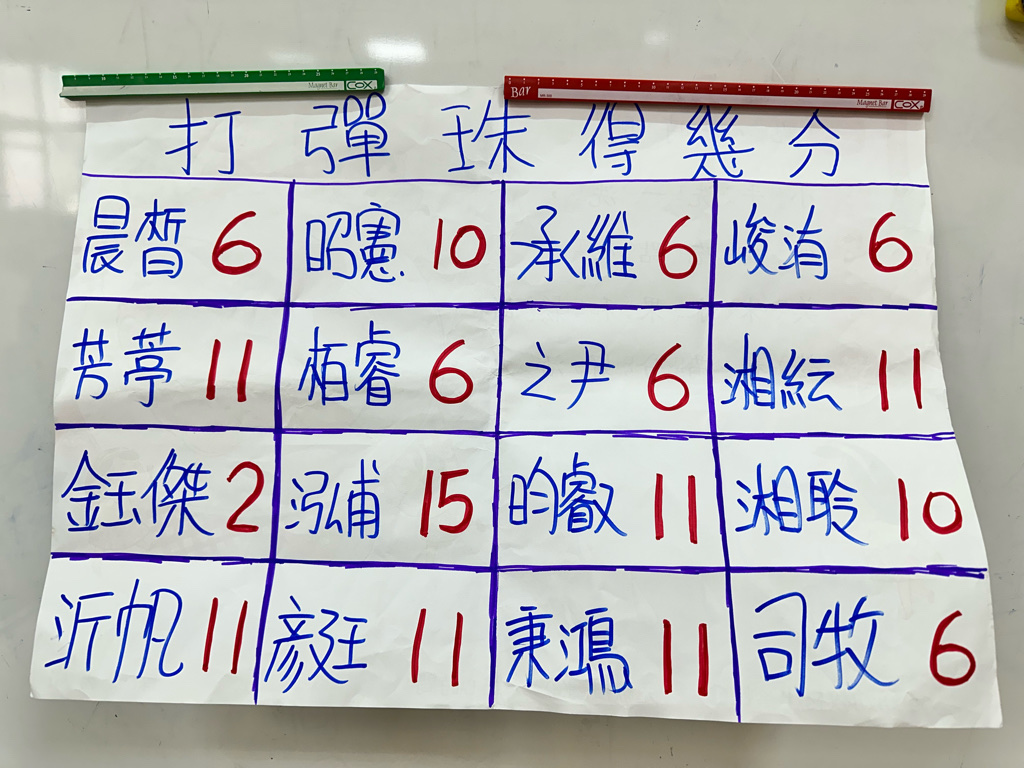 Magnet Bar COX
Bar Magnet Bar COX
打彈珠得幾分
晨晳 6 昭憲 10 承維 6 峻洧 6
芳葶 11 栢睿 6 之尹 6 湘紜 11
鈺傑 2 泓甫 15 昀叡 11 湘聆 10
沂帆 11 彥廷 11 秉鴻 11 司牧 6